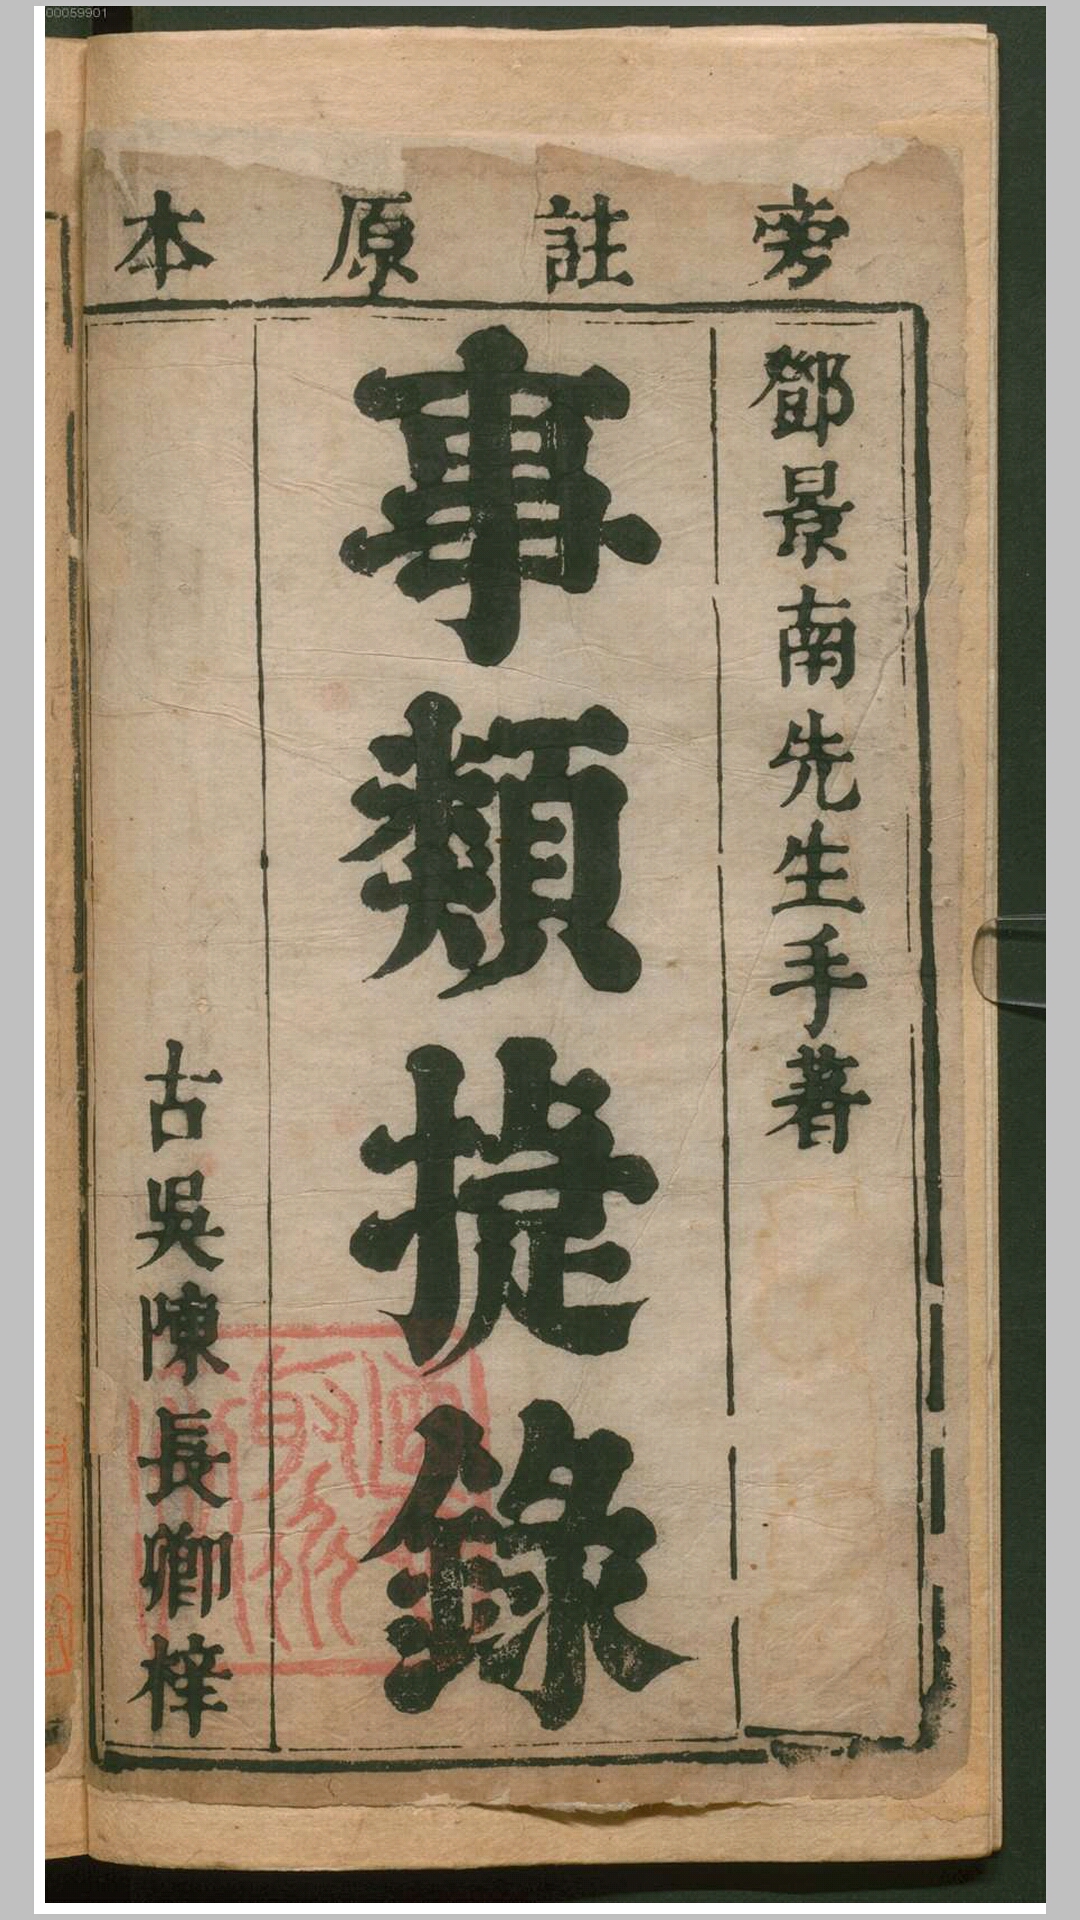 00059901
旁註原本
鄧景南先生手著
事類捷錄
古吳陳長卿梓